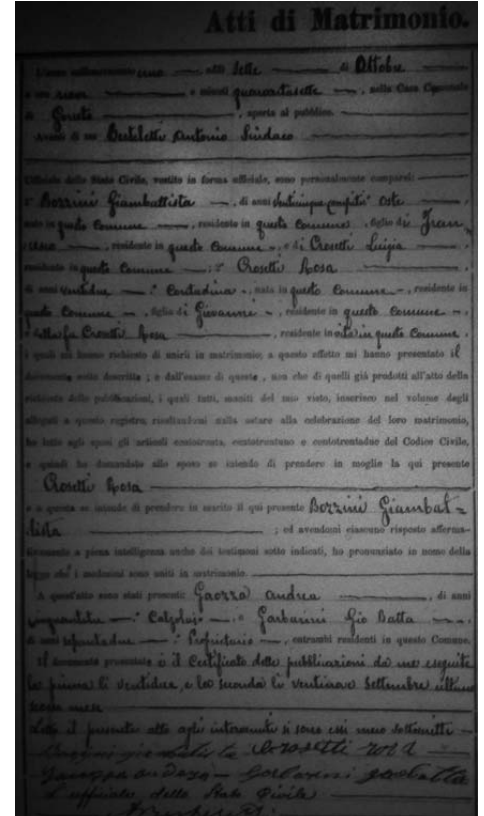 Atti di Matrimonio.
L'anno milleottocento, addì sette di Ottobre
a ore e minuti quarantasette, nella Casa Comunale
di, aperta al pubblico.
Antonio Sindaco
Uffiziale dello Stato Civile, vestito in forma ufficiale, sono personalmente comparsi:
1° Bozzini Giambattista, di anni ventinque compiti oste,
nato in questo Comune, residente in questo Comune, figlio di Fran
, residente in questo Comune, e di Crosetti Luigia
residente in questo Comune; 2° Crosetti Rosa
di anni ventidue, Contadina, nata in questo Comune, residente in
questo Comune, figlia di Giovanni, residente in questo Comune,
e della fu Crosetti Rosa, residente in vita in questo Comune,
i quali mi hanno richiesto di unirli in matrimonio; a questo effetto mi hanno presentato il
documento sotto descritto; e dall'esame di questo, non che di quelli già prodotti all'atto della
richiesta delle pubblicazioni, i quali tutti, muniti del mio visto, inserisco nel volume degli
allegati a questo registro, risultandomi nulla ostare alla celebrazione del loro matrimonio,
ho letto agli sposi gli articoli centotrenta, centotrentuno e centotrentadue del Codice Civile,
e quindi ho domandato allo sposo se intenda di prendere in moglie la qui presente
Crosetti Rosa
e a questa se intenda di prendere in marito il qui presente Bozzini Giambat=
tista; ed avendomi ciascuno risposto afferma-
tivamente a piena intelligenza anche dei testimoni sotto indicati, ho pronunziato in nome della
legge che i medesimi sono uniti in matrimonio.
A quest'atto sono stati presenti: Andrea, di anni
Calzolaio e Garbarini Gio Batta,
di anni Proprietario, entrambi residenti in questo Comune.
Il documento presentato è il Certificato delle pubblicazioni da me eseguite
la prima li ventidue, e la seconda li ventinove Settembre ultimo
mese
Letto il presente atto agli intervenuti si sono essi meco sottoscritti
Crosetti rosa
andrea
L'uffiziale dello Stato Civile